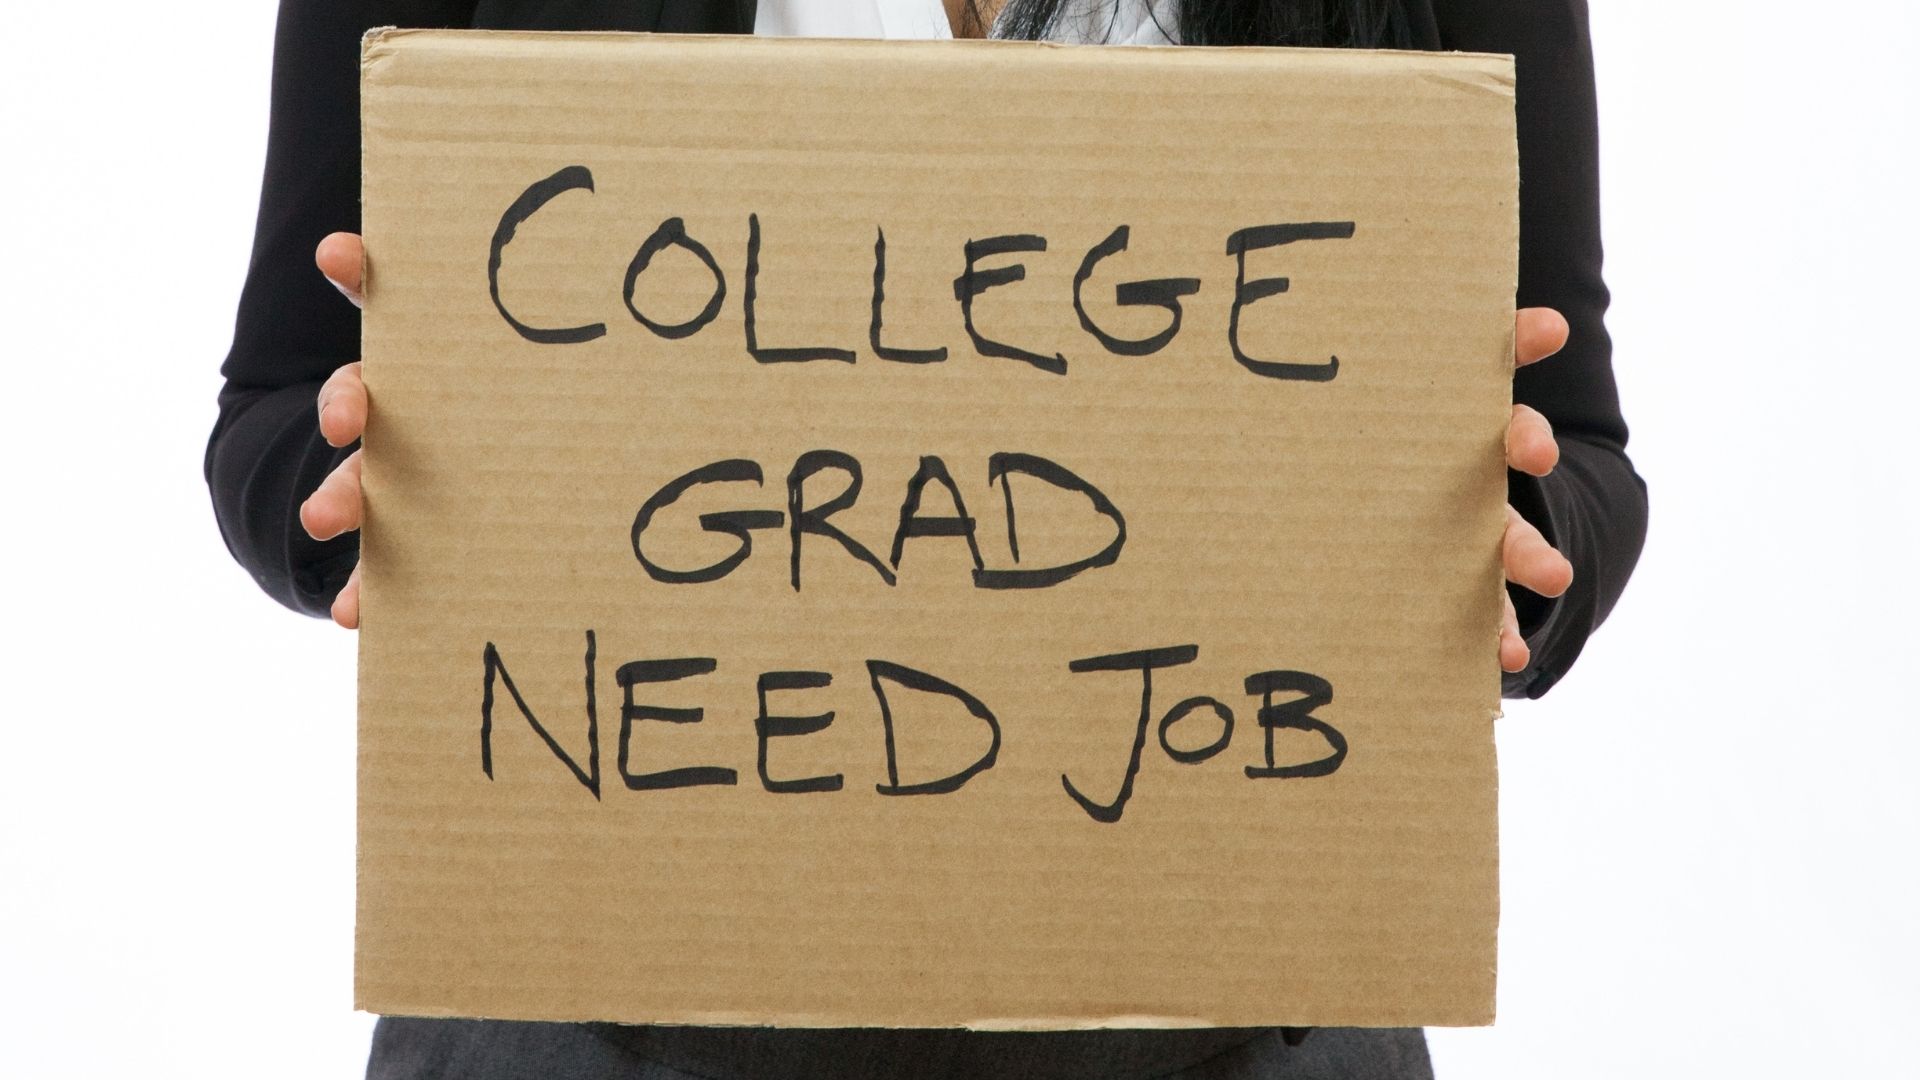 COLLEGE
GRAD
NEED JOB